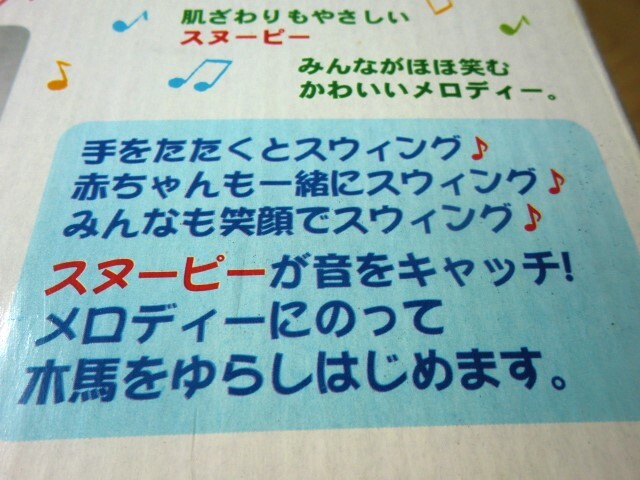 肌ざわりもやさしい
スヌーピー
みんながほほ笑む
かわいいメロディー。
手をたたくとスウィング♪
赤ちゃんも一緒にスウィング♪
みんなも笑顔でスウィング♪
スヌーピーが音をキャッチ!
メロディーにのって
木馬をゆらしはじめます。